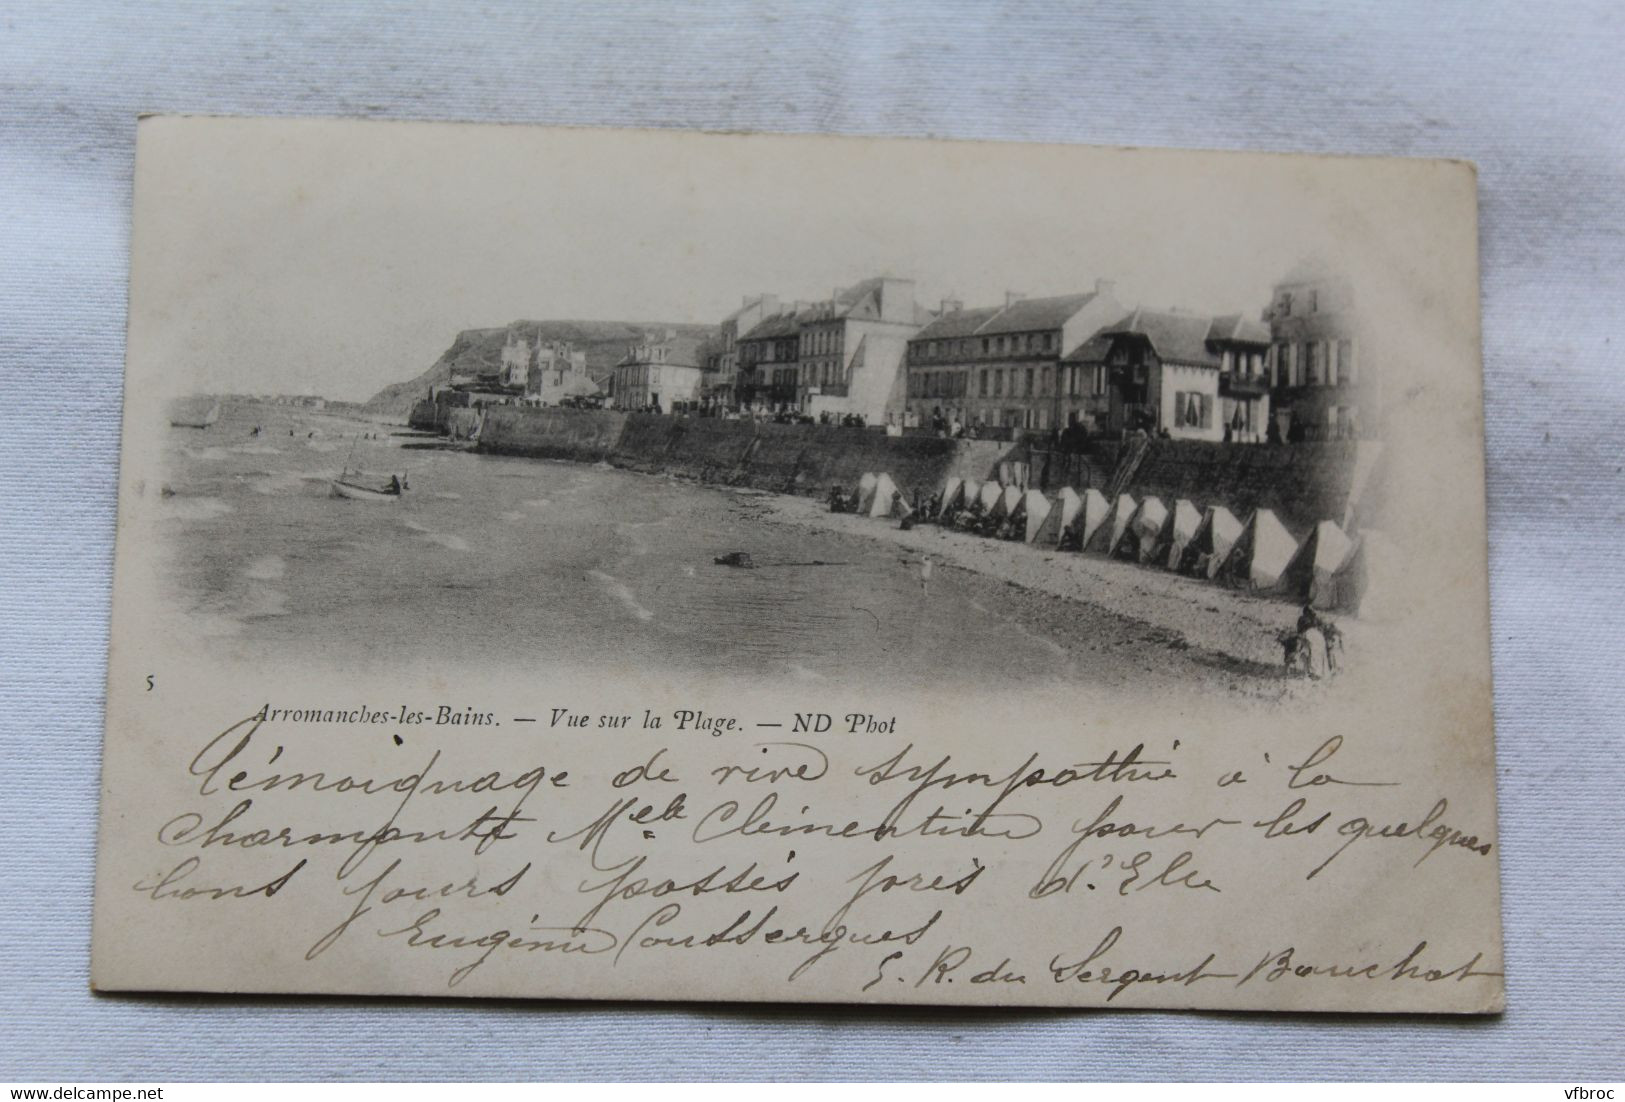 5
Arromanches-les-Bains. — Vue sur la Plage. — ND Phot
Témoignage de vive sympathie à la
charmante Melle Clémentine pour les quelques
bons jours passés près d'Elle
Eugénie Coussergues
5. R. du Sergent Bauchat
www.delcampe.net
vfbroc